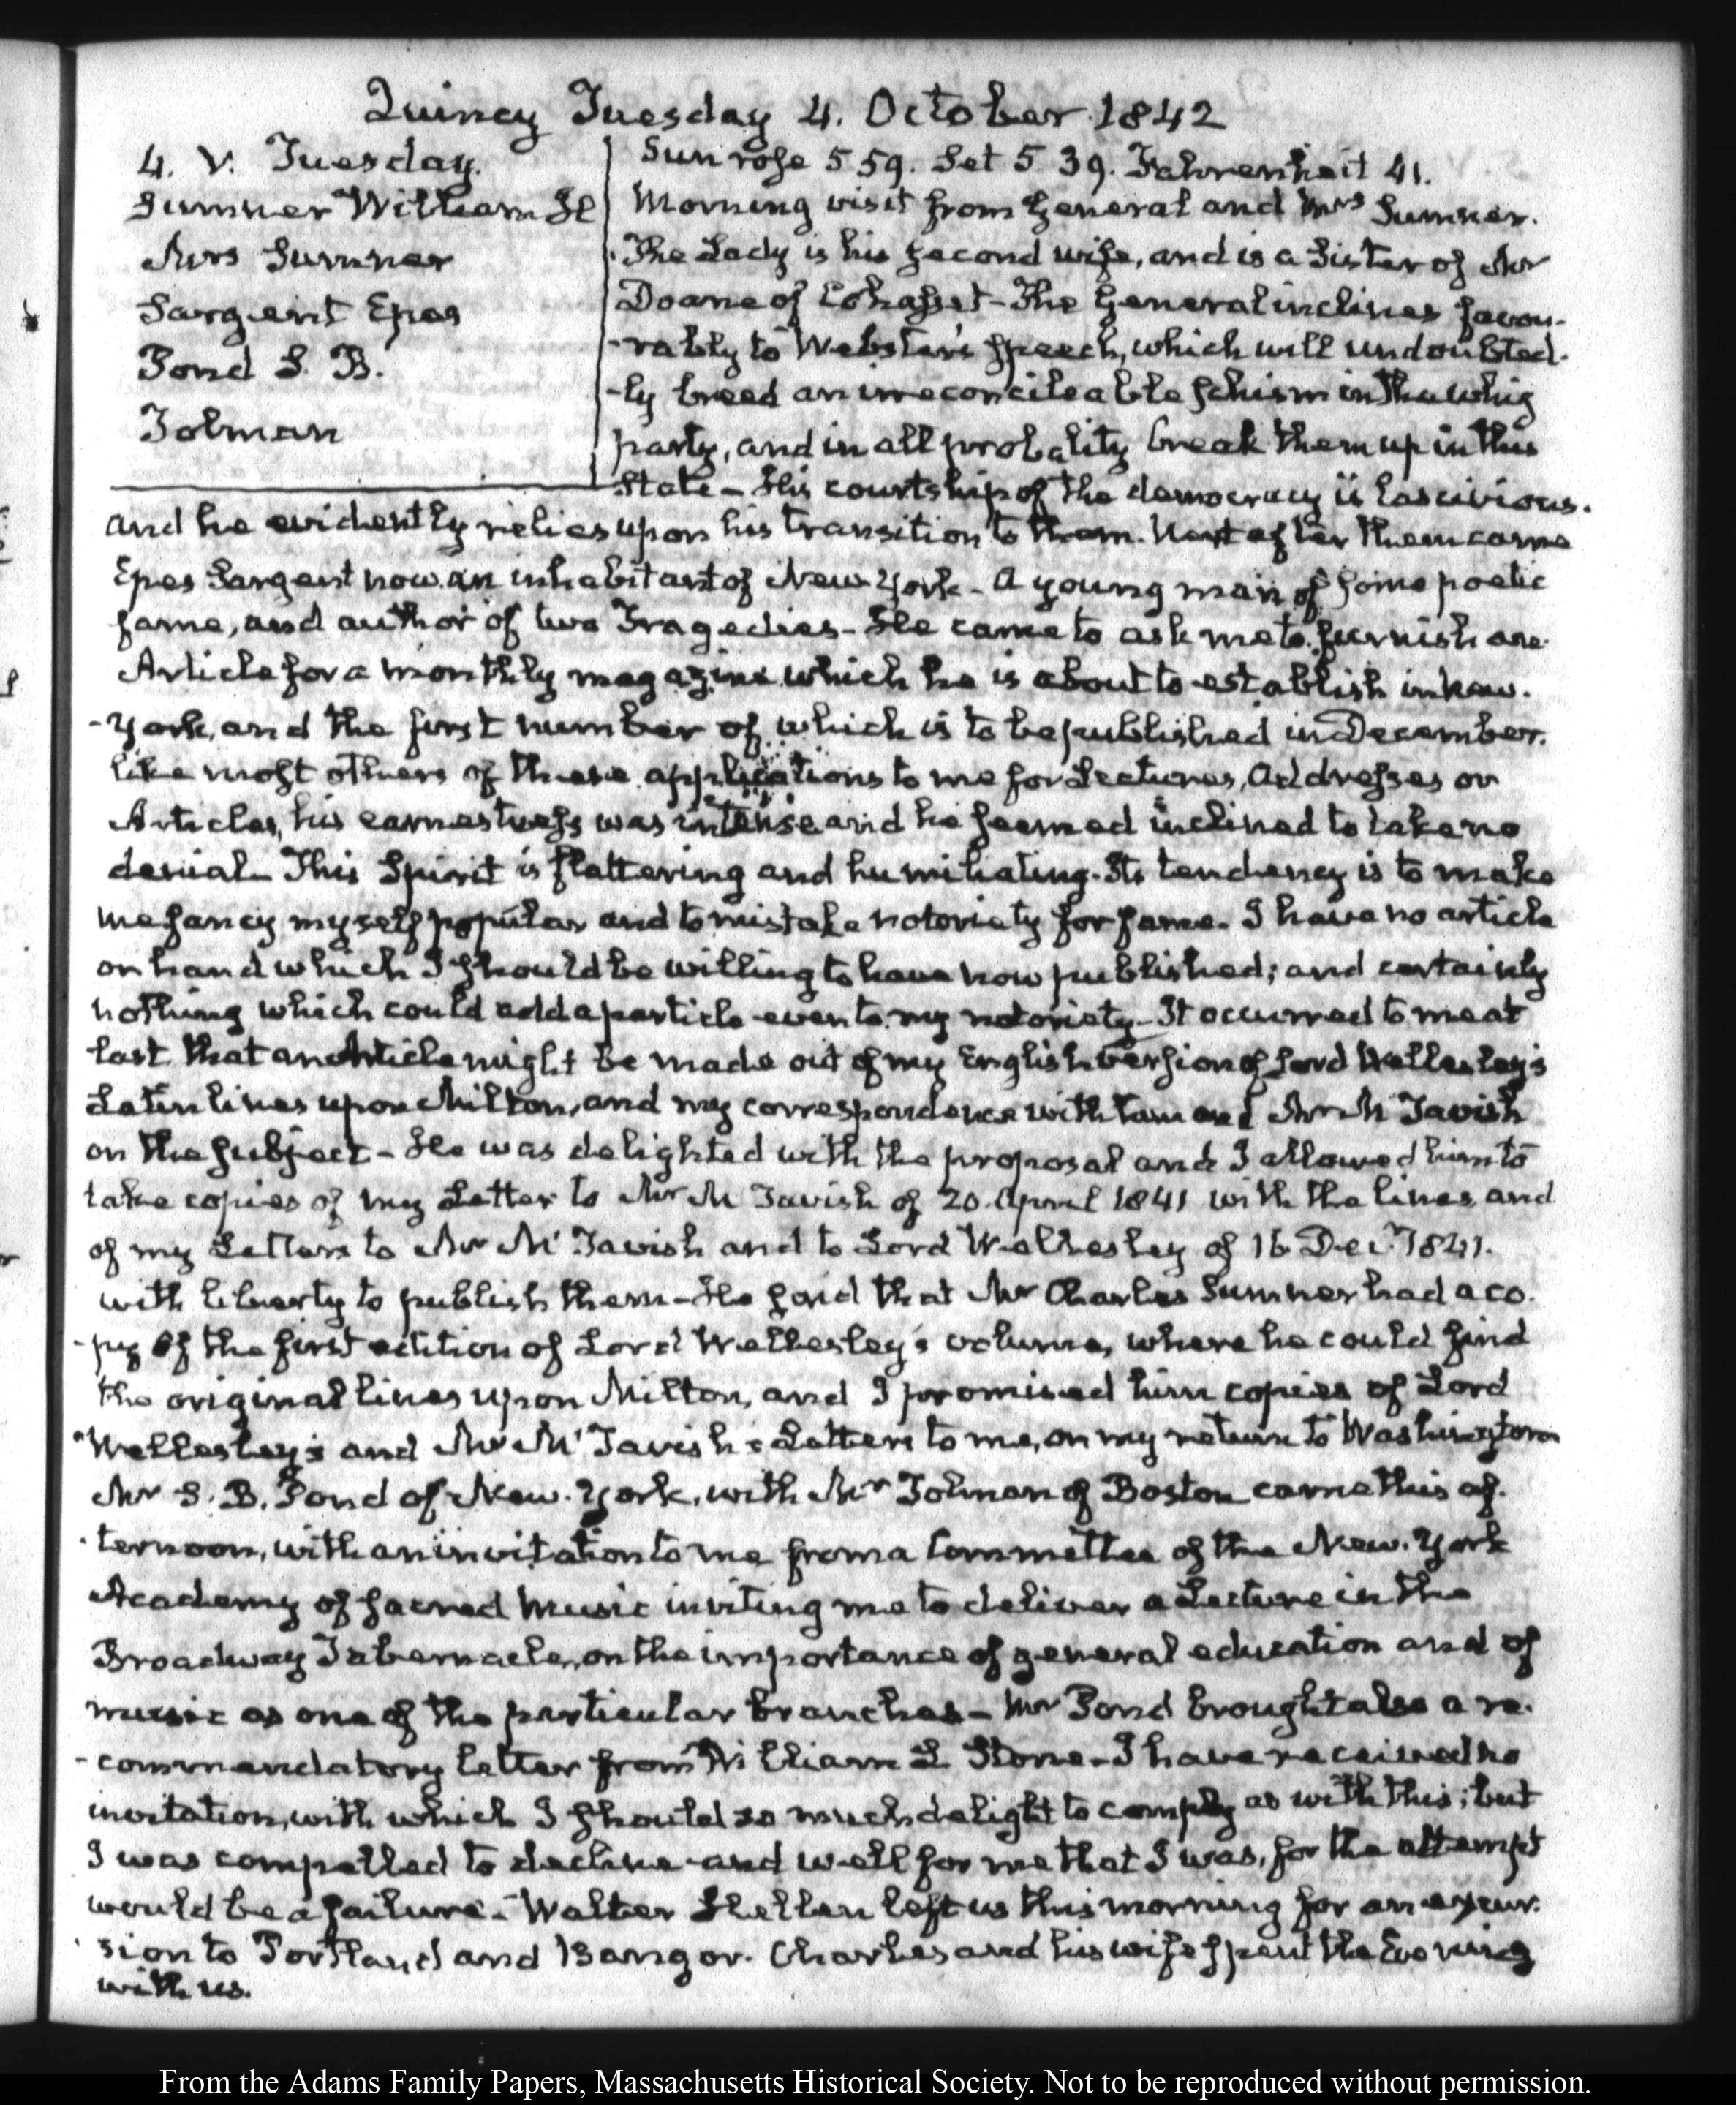 Quincy Tuesday 4. October 1842
4. V. Tuesday.
Sumner William H
Mrs Sumner
Sargent Epes
Pond S. B.
Tolman
Sun rose 5 59. Set 5. 39. Fahrenheit 41.
Morning visit from General and Mrs Sumner.
The Lady is his second wife, and is a Sister of Mr
Doane of Cohasset - The General inclines favou-
-rably to Webster's speech, which will undoubted-
-ly breed an irreconcileable schism in the whig
party, and in all probality break them up in this
State - His courtship of the democracy is lascivious.
and he evidently relies upon his transition to them. Next after them came
Epes Sargent now an inhabitant of New York - A young man of some poetic
fame, and author of two Tragedies - He came to ask me to furnish one
Article for a monthly magazine which he is about to establish in New-
-York, and the first number of which is to be published in December.
like most others of these applications to me for Lectures, Addresses or
Articles, his earnestness was intense and he seemed inclined to take no
denial - This Spirit is flattering and humiliating. Its tendency is to make
me fancy myself popular and to mistake notoriety for fame. I have no article
on hand which I should be willing to have now published; and certainly
nothing which could add a particle even to my notoriety - It occurred to me at
last that an Article might be made out of my English version of Lord Wellesley's
Latin lines upon Milton, and my correspondence with him and Mr McTavish
on the subject - He was delighted with the proposal and I allowed him to
take copies of my Letter to Mr McTavish of 20. April 1841 with the lines, and
of my Letters to Mr McTavish and to Lord Wellesley of 16. Dec. 1841.
with liberty to publish them - He said that Mr Charles Sumner had a co-
-py of the first edition of Lord Wellesley's volume, where he could find
the original lines upon Milton, and I promised him copies of Lord
Wellesley's and Mr McTavish's Letters to me, on my return to Washington
Mr S. B. Pond of New-York, with Mr Tolman of Boston came this af-
-ternoon, with an invitation to me from a Committee of the New-York
Academy of sacred Music inviting me to deliver a Lecture in the
Broadway Tabernacle, on the importance of general education and of
music as one of the particular branches - Mr Pond brought also a re-
-commendatory letter from William L Stone - I have received no
invitation, with which I should so much delight to comply as with this; but
I was compelled to decline and well for me that I was, for the attempt
would be a failure. - Walter Hellen left us this morning for an excur-
-sion to Portland and Bangor. Charles and his wife spent the Evening
with us.
From the Adams Family Papers, Massachusetts Historical Society. Not to be reproduced without permission.